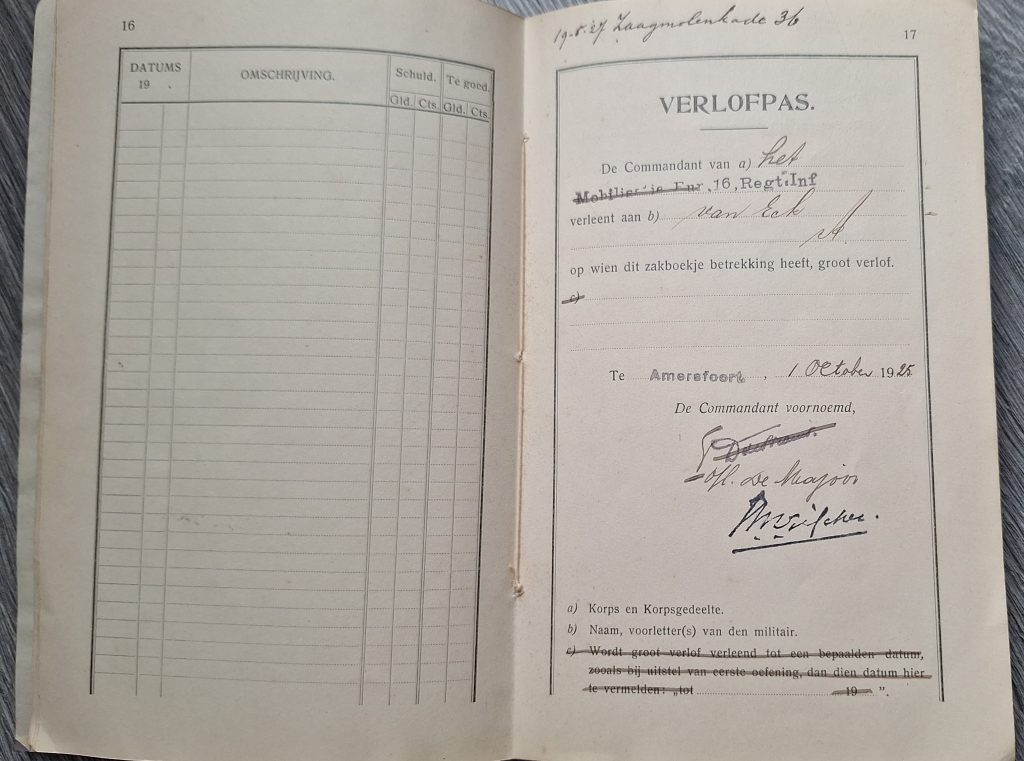 16
DATUMS
19 .
OMSCHRIJVING.
Schuld.
Te goed.
Gld. Cts. Gld. Cts.
19-8-27 Zaagmolenkade 36
17
VERLOFPAS.
De Commandant van a) het
16, Regt. Inf
verleent aan b) van Eck
A.
op wien dit zakboekje betrekking heeft, groot verlof.
c)
Te Amersfoort, 1 October 1925
De Commandant voornoemd,
De Majoor
a) Korps en Korpsgedeelte.
b) Naam, voorletter(s) van den militair.
c) Wordt groot verlof verleend tot een bepaalden datum,
zooals bij uitstel van eerste oefening, dan dien datum hier
te vermelden: „tot 19 ”.